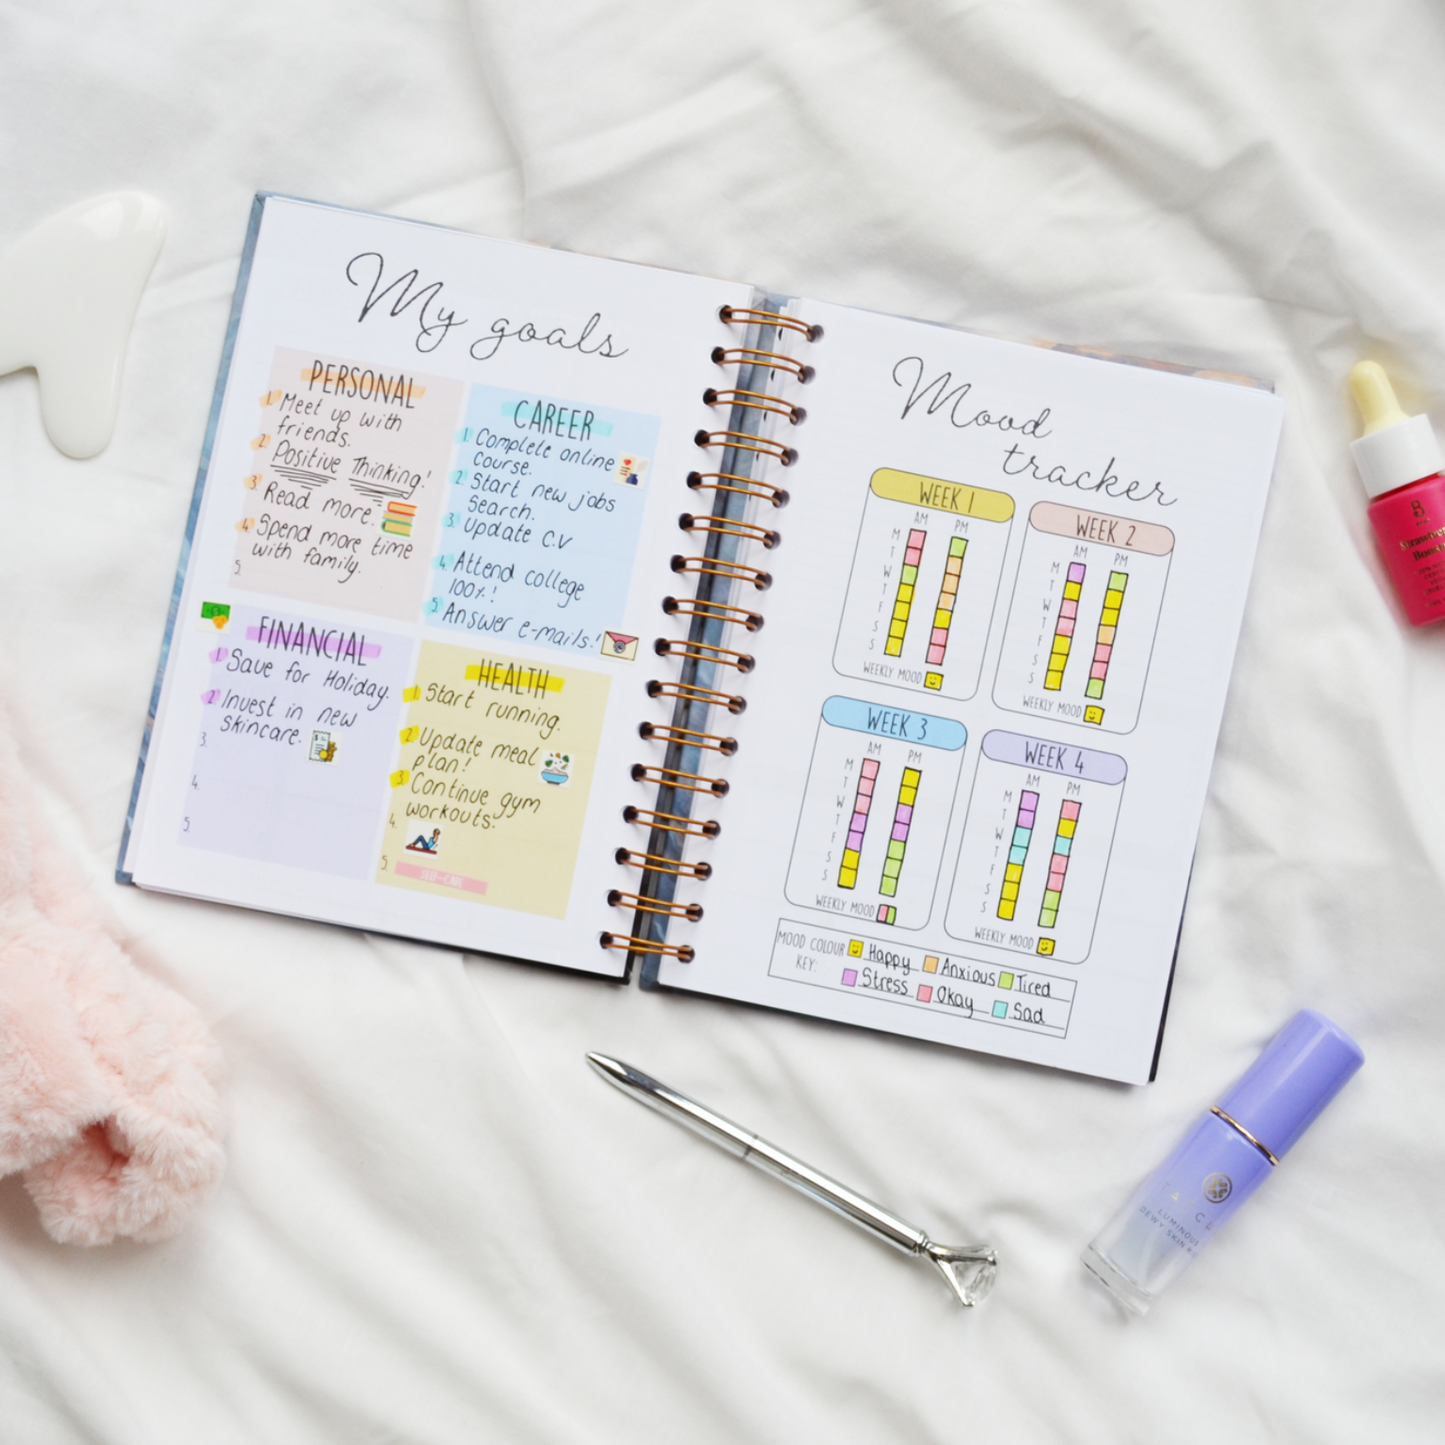 My goals
PERSONAL
1. Meet up with
friends.
2. Positive Thinking!
3. Read more.
4. Spend more time
with family.
5.
CAREER
1. Complete online
Course.
2. Start new jobs
Search.
3. Update C.V
4. Attend college
100%!
5. Answer e-mails!
FINANCIAL
1. Save for Holiday.
2. Invest in new
skincare.
3.
4.
5.
HEALTH
1. Start running.
2. Update meal
plan!
3. Continue gym
workouts.
4.
5.
SELF-CARE
Mood
tracker
WEEK 1
AM PM
M
T
W
T
F
S
S
WEEKLY MOOD
WEEK 2
AM PM
M
T
W
T
F
S
S
WEEKLY MOOD
WEEK 3
AM PM
M
T
W
T
F
S
S
WEEKLY MOOD
WEEK 4
AM PM
M
T
W
T
F
S
S
WEEKLY MOOD
MOOD COLOUR
KEY:
Happy Anxious Tired
Stress Okay Sad
LUMINOUS
DEWY SKIN